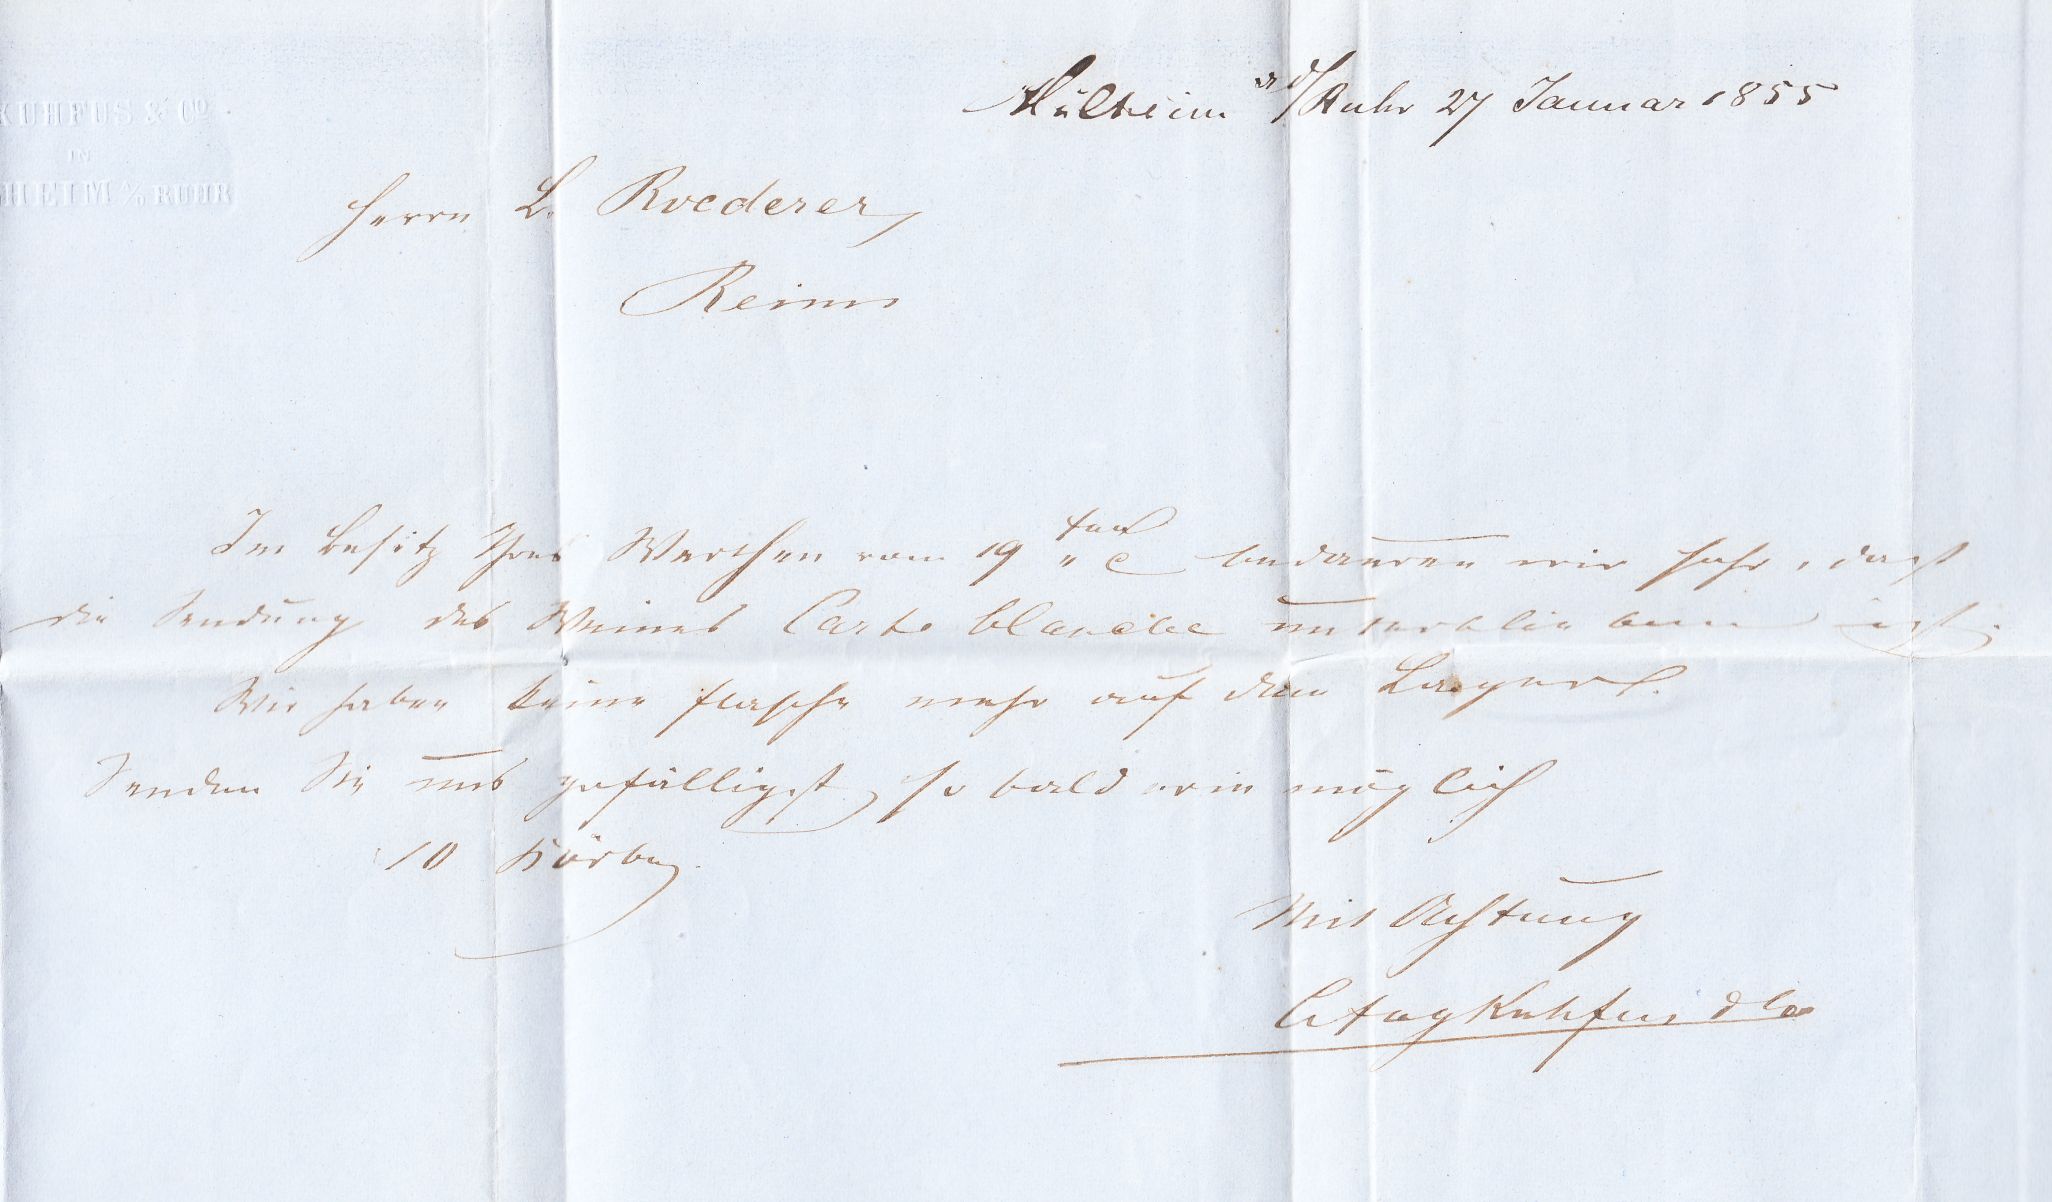 KUHFUS & Co
IN
HEIM a/D RUHR
Mülheim a d/Ruhr 27 Januar 1855
Herrn L. Roederer,
Reims
Im Besitz Ihres Werthen vom 19 ten c bedauern wir sehr, dass
die Sendung des Weines Carte blanche unterblieben ist.
Wir haben keine Flasche mehr auf dem Lager.
Senden Sie uns gefälligst so bald wie möglich
10 Körbe
Mit Achtung
Kuhfus & Co